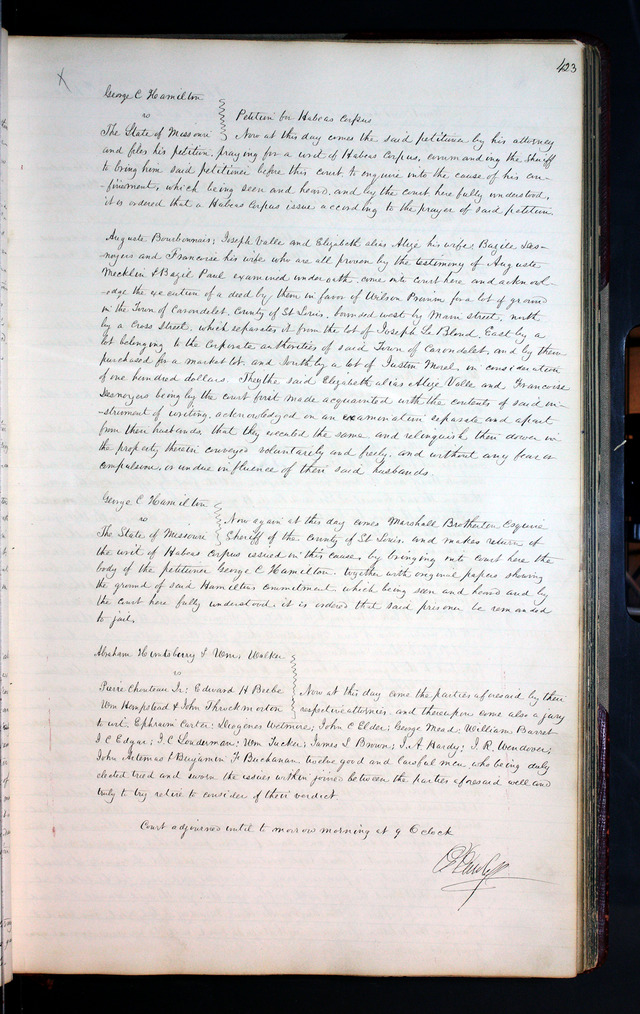 423
George C Hamilton
vs
Petition for Habeas Corpus
The State of Missouri
Now at this day comes the said petitioner by his attorney
and files his petition, praying for a writ of Habeas Corpus, commanding the Sheriff
to bring him said petitioner before this court to enquire into the cause of his con-
-finement, which being seen and heard, and by the court here fully understood,
it is ordered that a Habeas Corpus issue according to the prayer of said petition.
Auguste Bourbonnais; Joseph Valle and Elizabeth alias Alize his wife; Bazile Des-
noyers and Francoise his wife who are all proven by the testimony of Auguste
Mecklin & Bazil Paul examined under oath, come into court here and acknowl-
-edge the execution of a deed by them in favor of Wilson Primm for a lot of ground
in the Town of Carondelet, County of St Louis, bounded west by Main street, north
by a Cross Street, which separates it from the lot of Joseph Le Blond, East by a
lot belonging to the Corporate authorities of said Town of Carondelet, and by them
purchased for a market lot, and South by a lot of Justin Morel, in consideration
of one hundred dollars. They the said Elizabeth alias Alize Valle and Francoise
Desnoyers being by the court first made acquainted with the contents of said in-
-strument of writing, acknowledged on an examination separate and apart
from their husbands that they executed the same and relinquish their dower in
the property therein conveyed voluntarily and freely, and without any fear or
compulsion, or undue influence of their said husbands.
George C Hamilton
vs
Now again at this day comes Marshall Brotherton Esquire
The State of Missouri
Sheriff of the County of St Louis, and makes return of
the writ of Habeas Corpus issued in this cause, by bringing into court here the
body of the petitioner George C Hamilton, together with original papers showing
the ground of said Hamiltons commitment, which being seen and heard and by
the court here fully understood, it is ordered that said prisoner be remanded
to jail.
Abraham Huntsberry & Wm. Walker
vs
Pierre Chouteau Jr; Edward H Beebe
Now at this day come the parties aforesaid by their
Wm Hempstead & John Throckmorton
respective attornies, and thereupon come also a jury
to wit Ephraim Carter; Diogenes Wetmore; John C Elder; George Mead; William Barret
J C Edgar; J. C Louderman; Wm Tucker; James S Brown; J. A Hardy; J. R. Wendover;
John & Benjamin F Buchanan, twelve good and lawful men who being duly
elected tried and sworn the issues within joined between the parties aforesaid well and
truly to try retire to consider of their verdict
Court adjourned until to morrow morning at 9 O clock